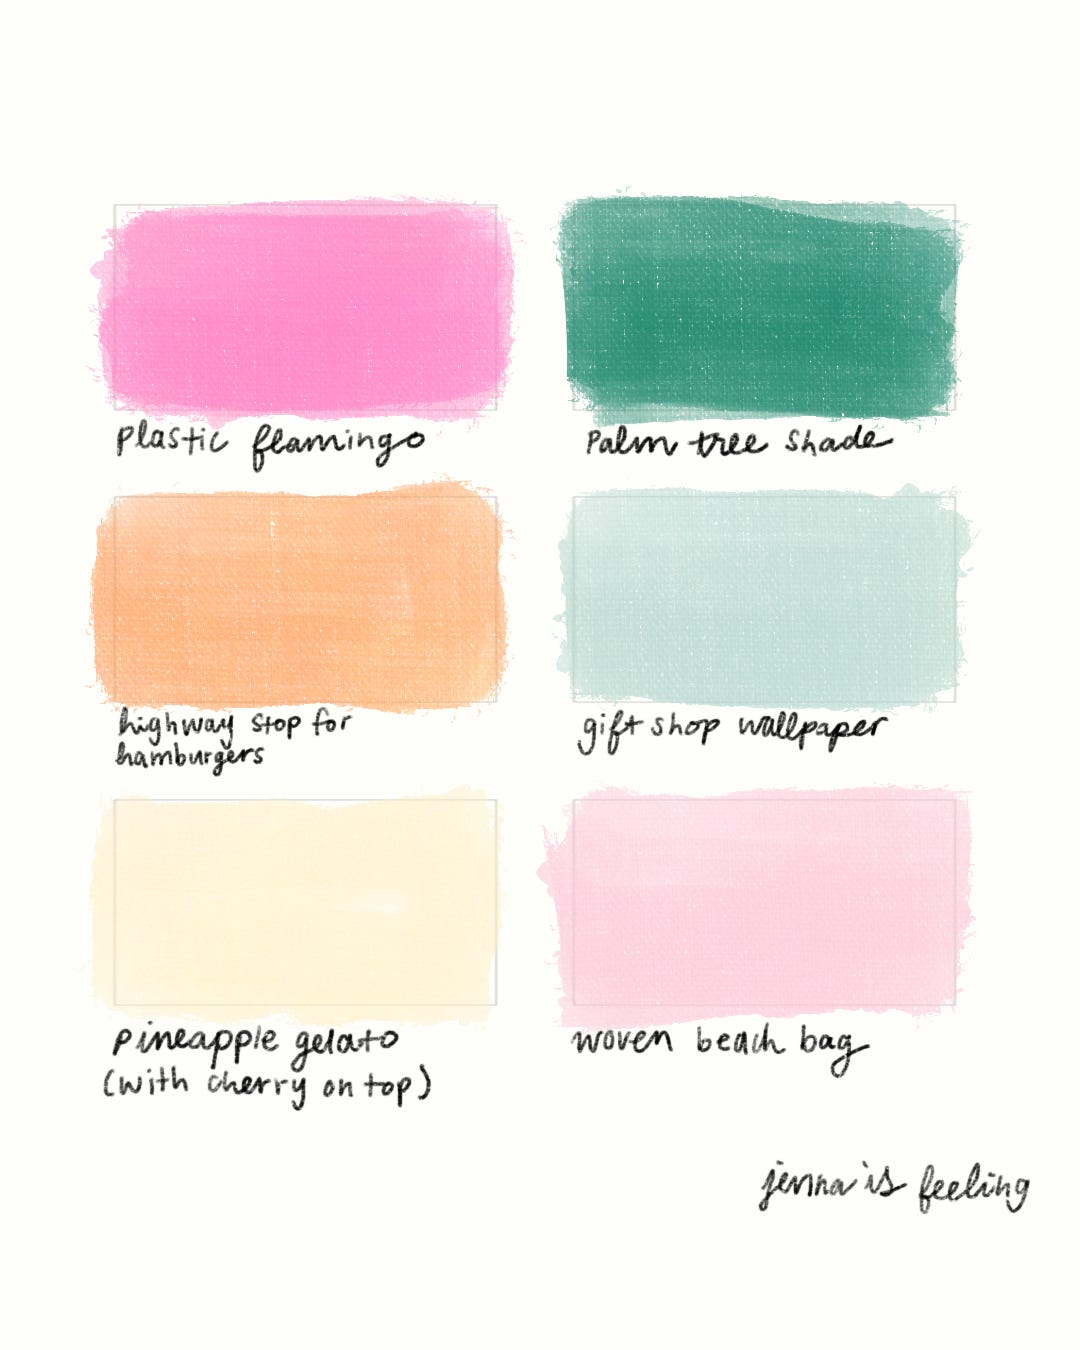 plastic flamingo
palm tree shade
highway stop for
hamburgers
gift shop wallpaper
pineapple gelato
(with cherry on top)
woven beach bag
jenna is feeling